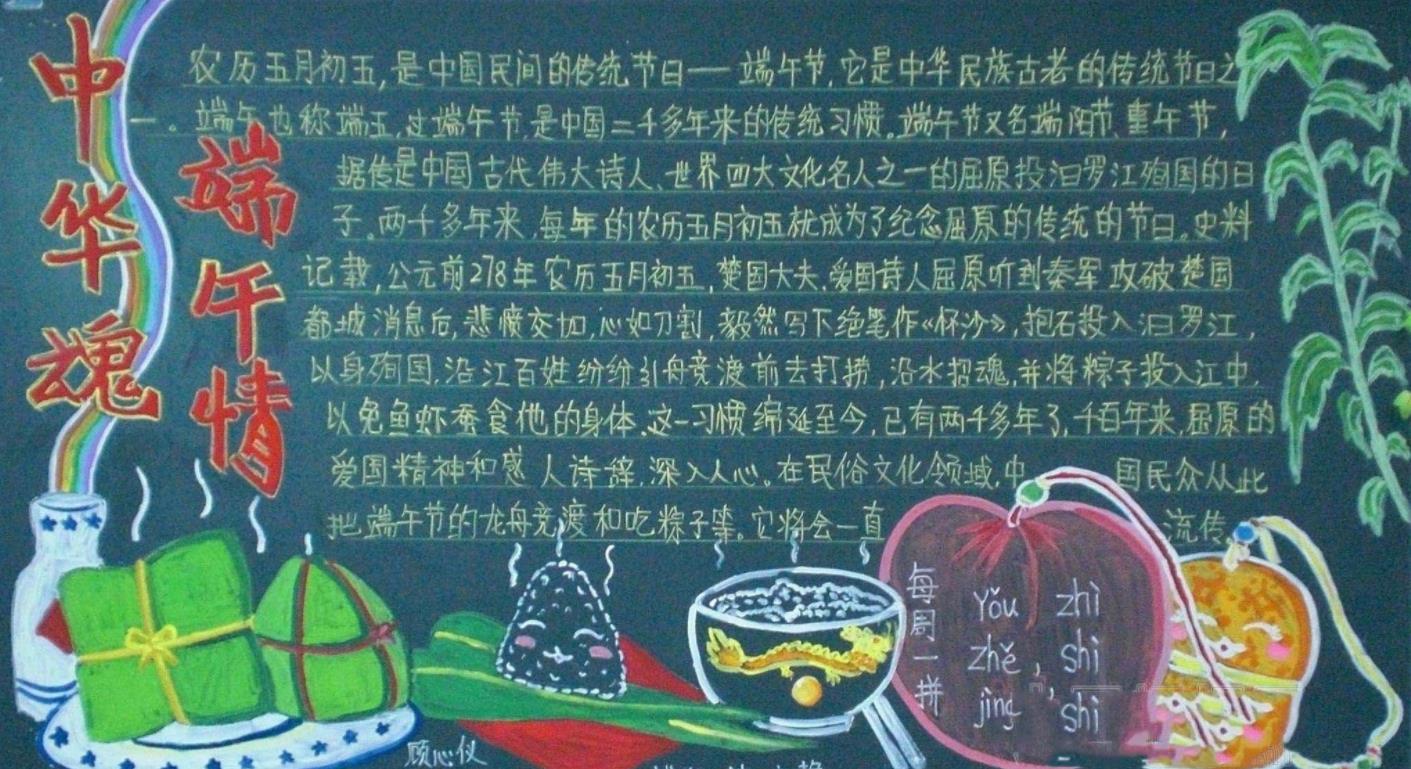 中华魂
端午情
农历五月初五,是中国民间的传统节日——端午节,它是中华民族古老的传统节日之
一。端午也称端五,过端午节,是中国二千多年来的传统习惯。端午节又名端阳节、重午节,
据传是中国古代伟大诗人、世界四大文化名人之一的屈原投汨罗江殉国的日
子。两千多年来,每年的农历五月初五就成为了纪念屈原的传统的节日。史料
记载,公元前278年农历五月初五,楚国大夫、爱国诗人屈原听到秦军攻破楚国
都城消息后,悲愤交加,心如刀割,毅然写下绝笔作《怀沙》,抱石投入汨罗江,
以身殉国。沿江百姓纷纷引舟竞渡前去打捞,沿水招魂,并将粽子投入江中,
以免鱼虾蚕食他的身体。这一习惯绵延至今,已有两千多年了,千百年来,屈原的
爱国精神和感人诗辞,深入人心。在民俗文化领域,中国民众从此
把端午节的龙舟竞渡和吃粽子等。它将会一直流传。
每周一拼
yǒu zhì
zhě , shì
jìng , shì
顾心仪